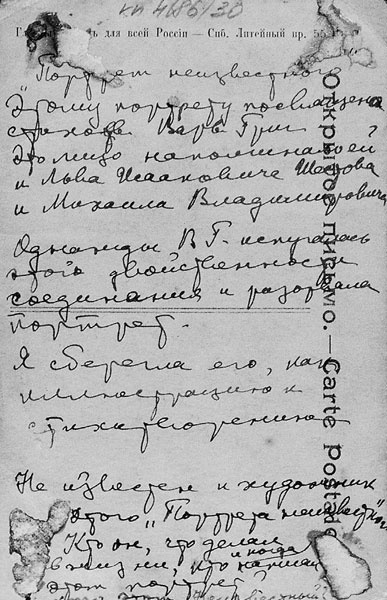 кп 4686/30
для всей Россіи — Спб. Литейный пр. 55
Открытое письмо. — Carte postale
"Портрет неизвестного"
Этому портрету посвящено
стихотв. Варв. Григ.
Это лицо напоминало ей
и Льва Исааковича Шестова
и Михаила Владимировича
Однажды В. Г. испугалась
этого двойственности
соединения и разорвала
портрет.
Я сберегла его, как
иллюстрацию к
стихотворению
Не известен и художник
этого "Портрета неизвестного"
Кто он, что делал
в жизни, кто и когда написал
этот портрет?